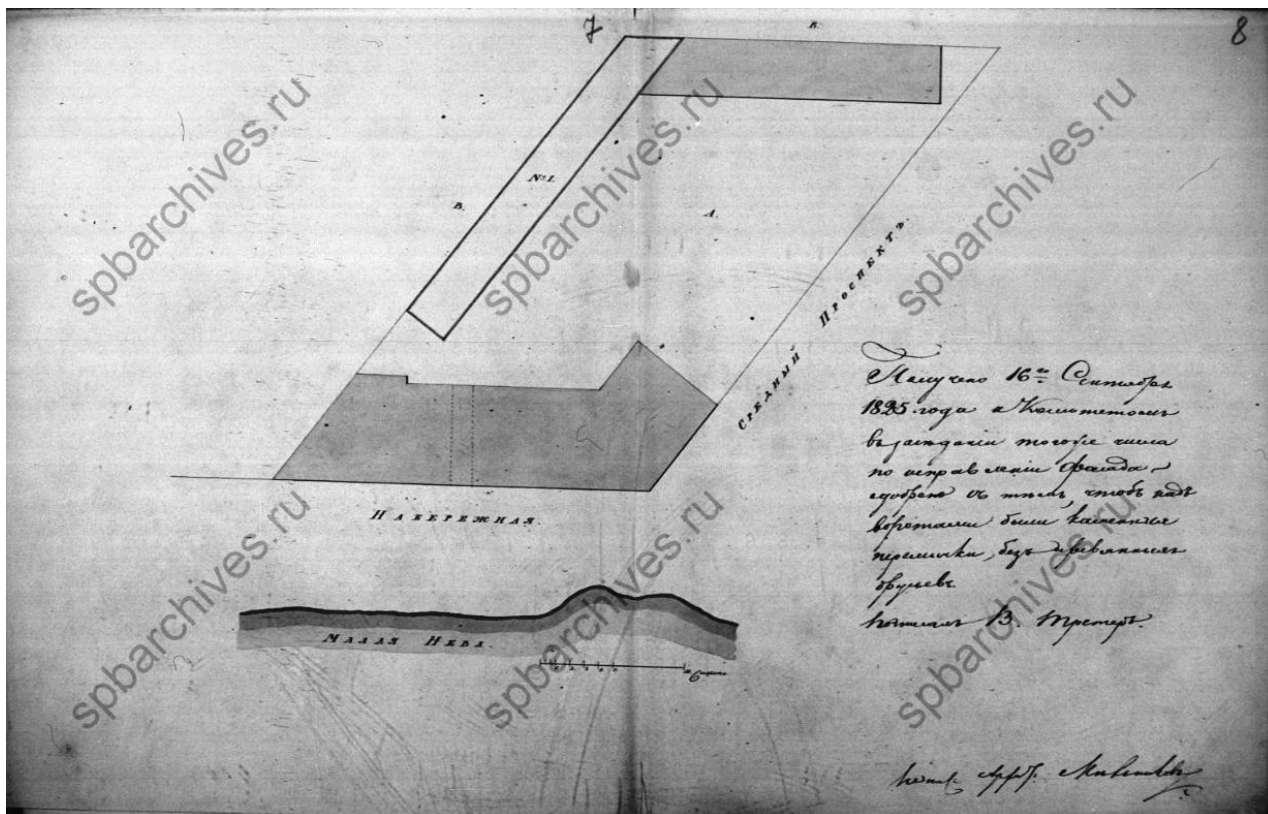 7
8
В.
№ 1.
В.
А.
Средный Проспектъ.
Набережная.
Малая Нева.
Сажень
Получено 16го Сентября
1825 года и Комитетомъ
въ заседанiи тогоже числа
по исправленiи Фасада
одобрено съ темъ, чтобъ надъ
воротами были каменные
перемычки, безъ деревянныхъ
брусьевъ
В. Третеръ.
spbarchives.ru
spbarchives.ru
spbarchives.ru
spbarchives.ru
spbarchives.ru
spbarchives.ru